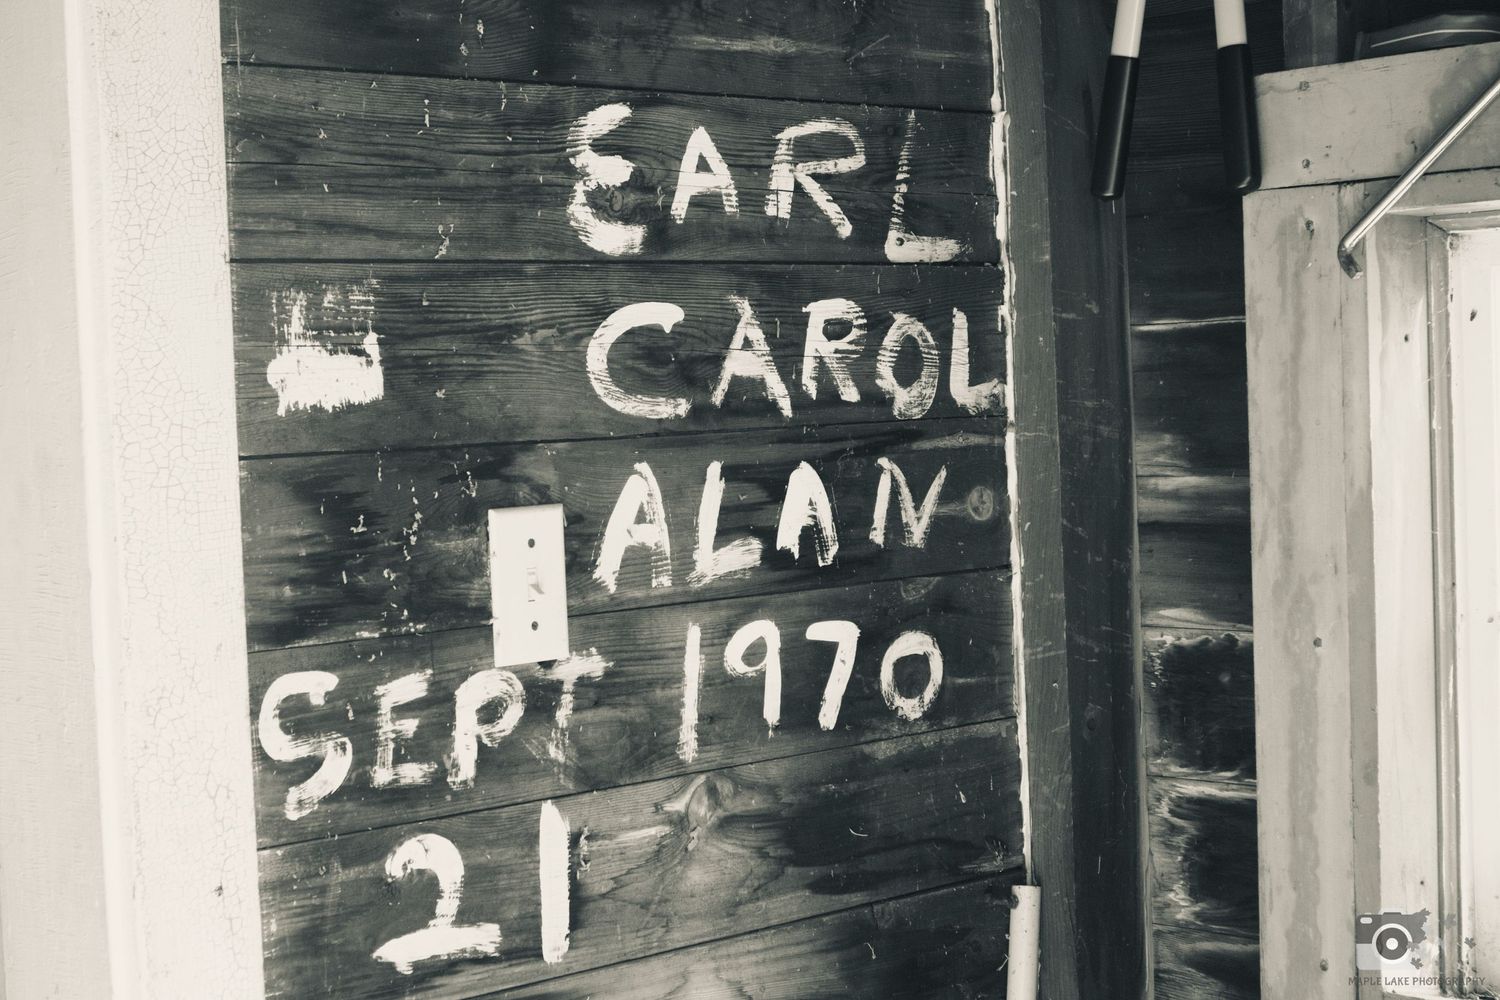 EARL
CAROL
ALAN
SEPT 1970
21
MAPLE LAKE PHOTOGRAPHY